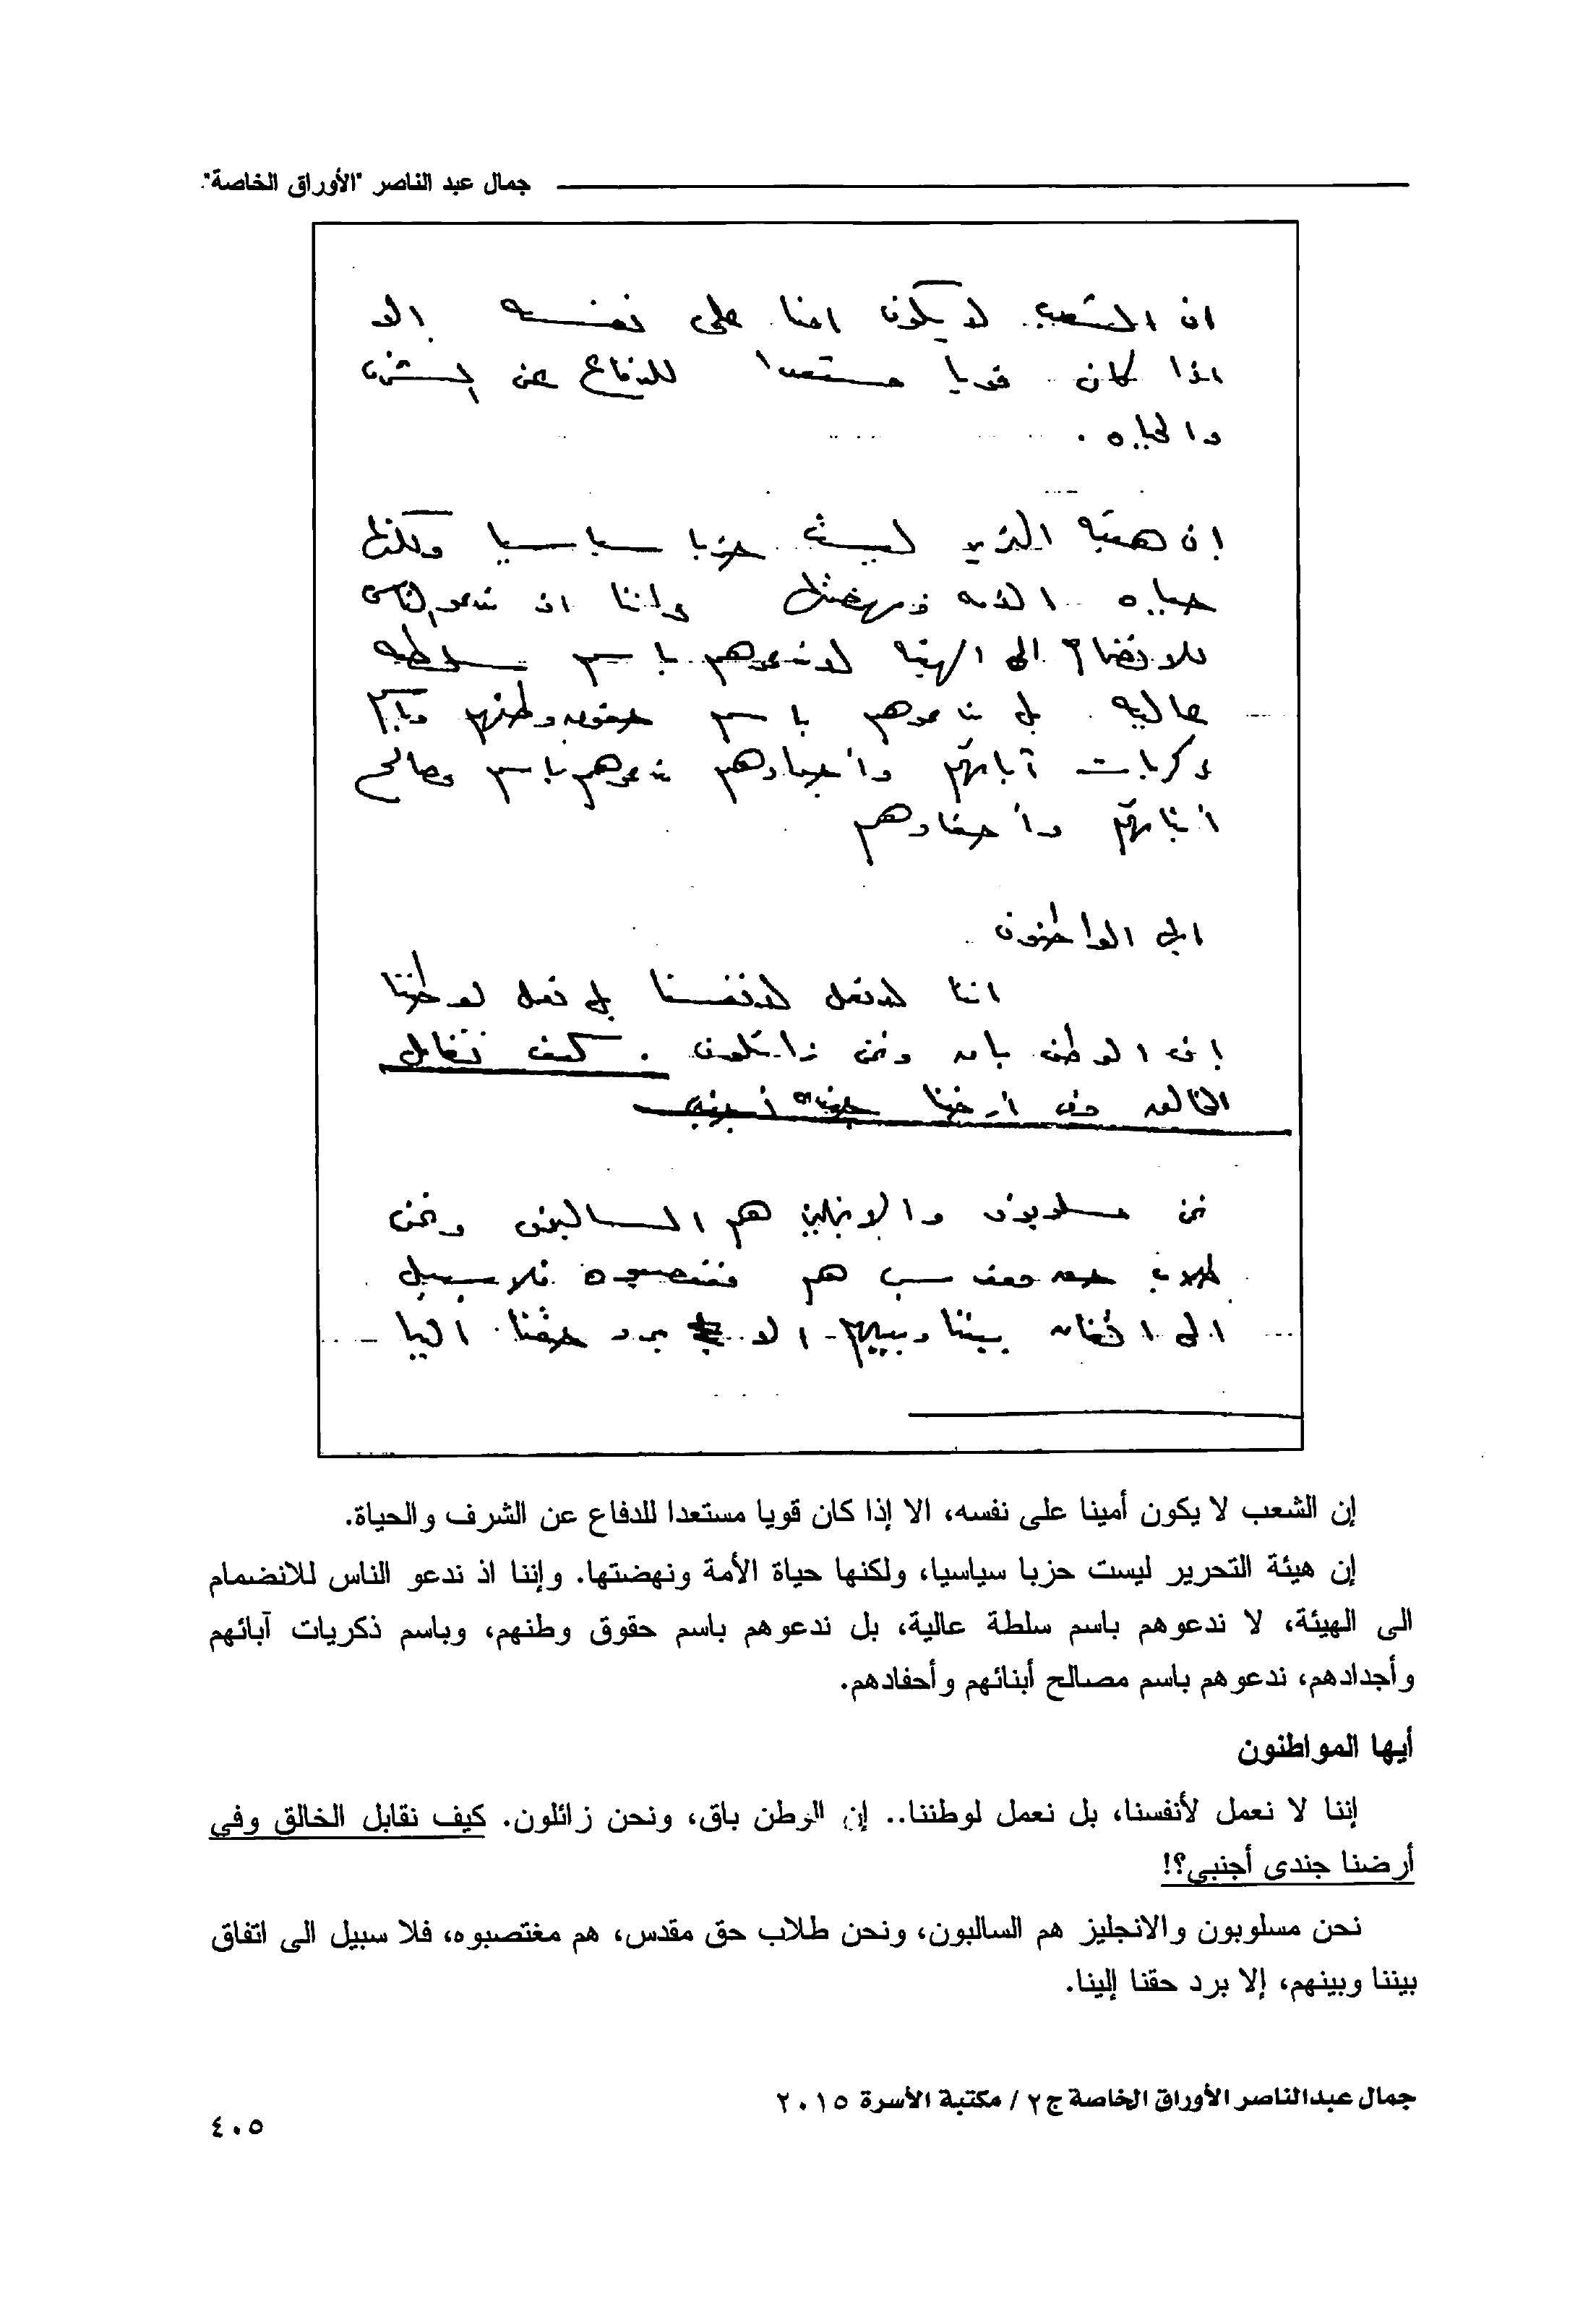 جمال عبد الناصر "الأوراق الخاصة".
ان الشعب لا يكون امنا على نفسه الا
اذا كان قويا مستعدا للدفاع عن الشرف
والحياه .
إن هيئه التحرير ليست حزبا سياسيا ولكنها
حياه الامه ونهضتها واننا اذ ندعو الناس
للانضمام الى الهيئه لا ندعوهم باسم سلطه
عاليه بل ندعوهم باسم حقوق وطنهم وباسم
ذكريات آبائهم وأجدادهم ندعوهم باسم مصالح
أبنائهم وأحفادهم
ايها المواطنون
اننا لا نعمل لانفسنا بل نعمل لوطننا
إن الوطن باق ونحن زائلون . كيف نقابل
الخالق وفى أرضنا جندى أجنبى
نحن مسلوبون والانجليز هم السالبون ونحن
طلاب حق مقدس هم مغتصبوه فلا سبيل
الى اتفاق بيننا وبينهم الا برد حقنا الينا
إن الشعب لا يكون أمينا على نفسه، الا إذا كان قويا مستعدا للدفاع عن الشرف والحياة.
إن هيئة التحرير ليست حزبا سياسيا، ولكنها حياة الأمة ونهضتها. وإننا اذ ندعو الناس للانضمام
الى الهيئة، لا ندعوهم باسم سلطة عالية، بل ندعوهم باسم حقوق وطنهم، وباسم ذكريات آبائهم
وأجدادهم، ندعوهم باسم مصالح أبنائهم وأحفادهم.
أيها المواطنون
إننا لا نعمل لأنفسنا، بل نعمل لوطننا.. إن الوطن باق، ونحن زائلون. كيف نقابل الخالق وفى
أرضنا جندى أجنبى؟!
نحن مسلوبون والانجليز هم السالبون، ونحن طلاب حق مقدس، هم مغتصبوه، فلا سبيل الى اتفاق
بيننا وبينهم، إلا برد حقنا إلينا.
جمال عبدالناصر الأوراق الخاصة ج٢ / مكتبة الأسرة ٢٠١٥
٤٠٥